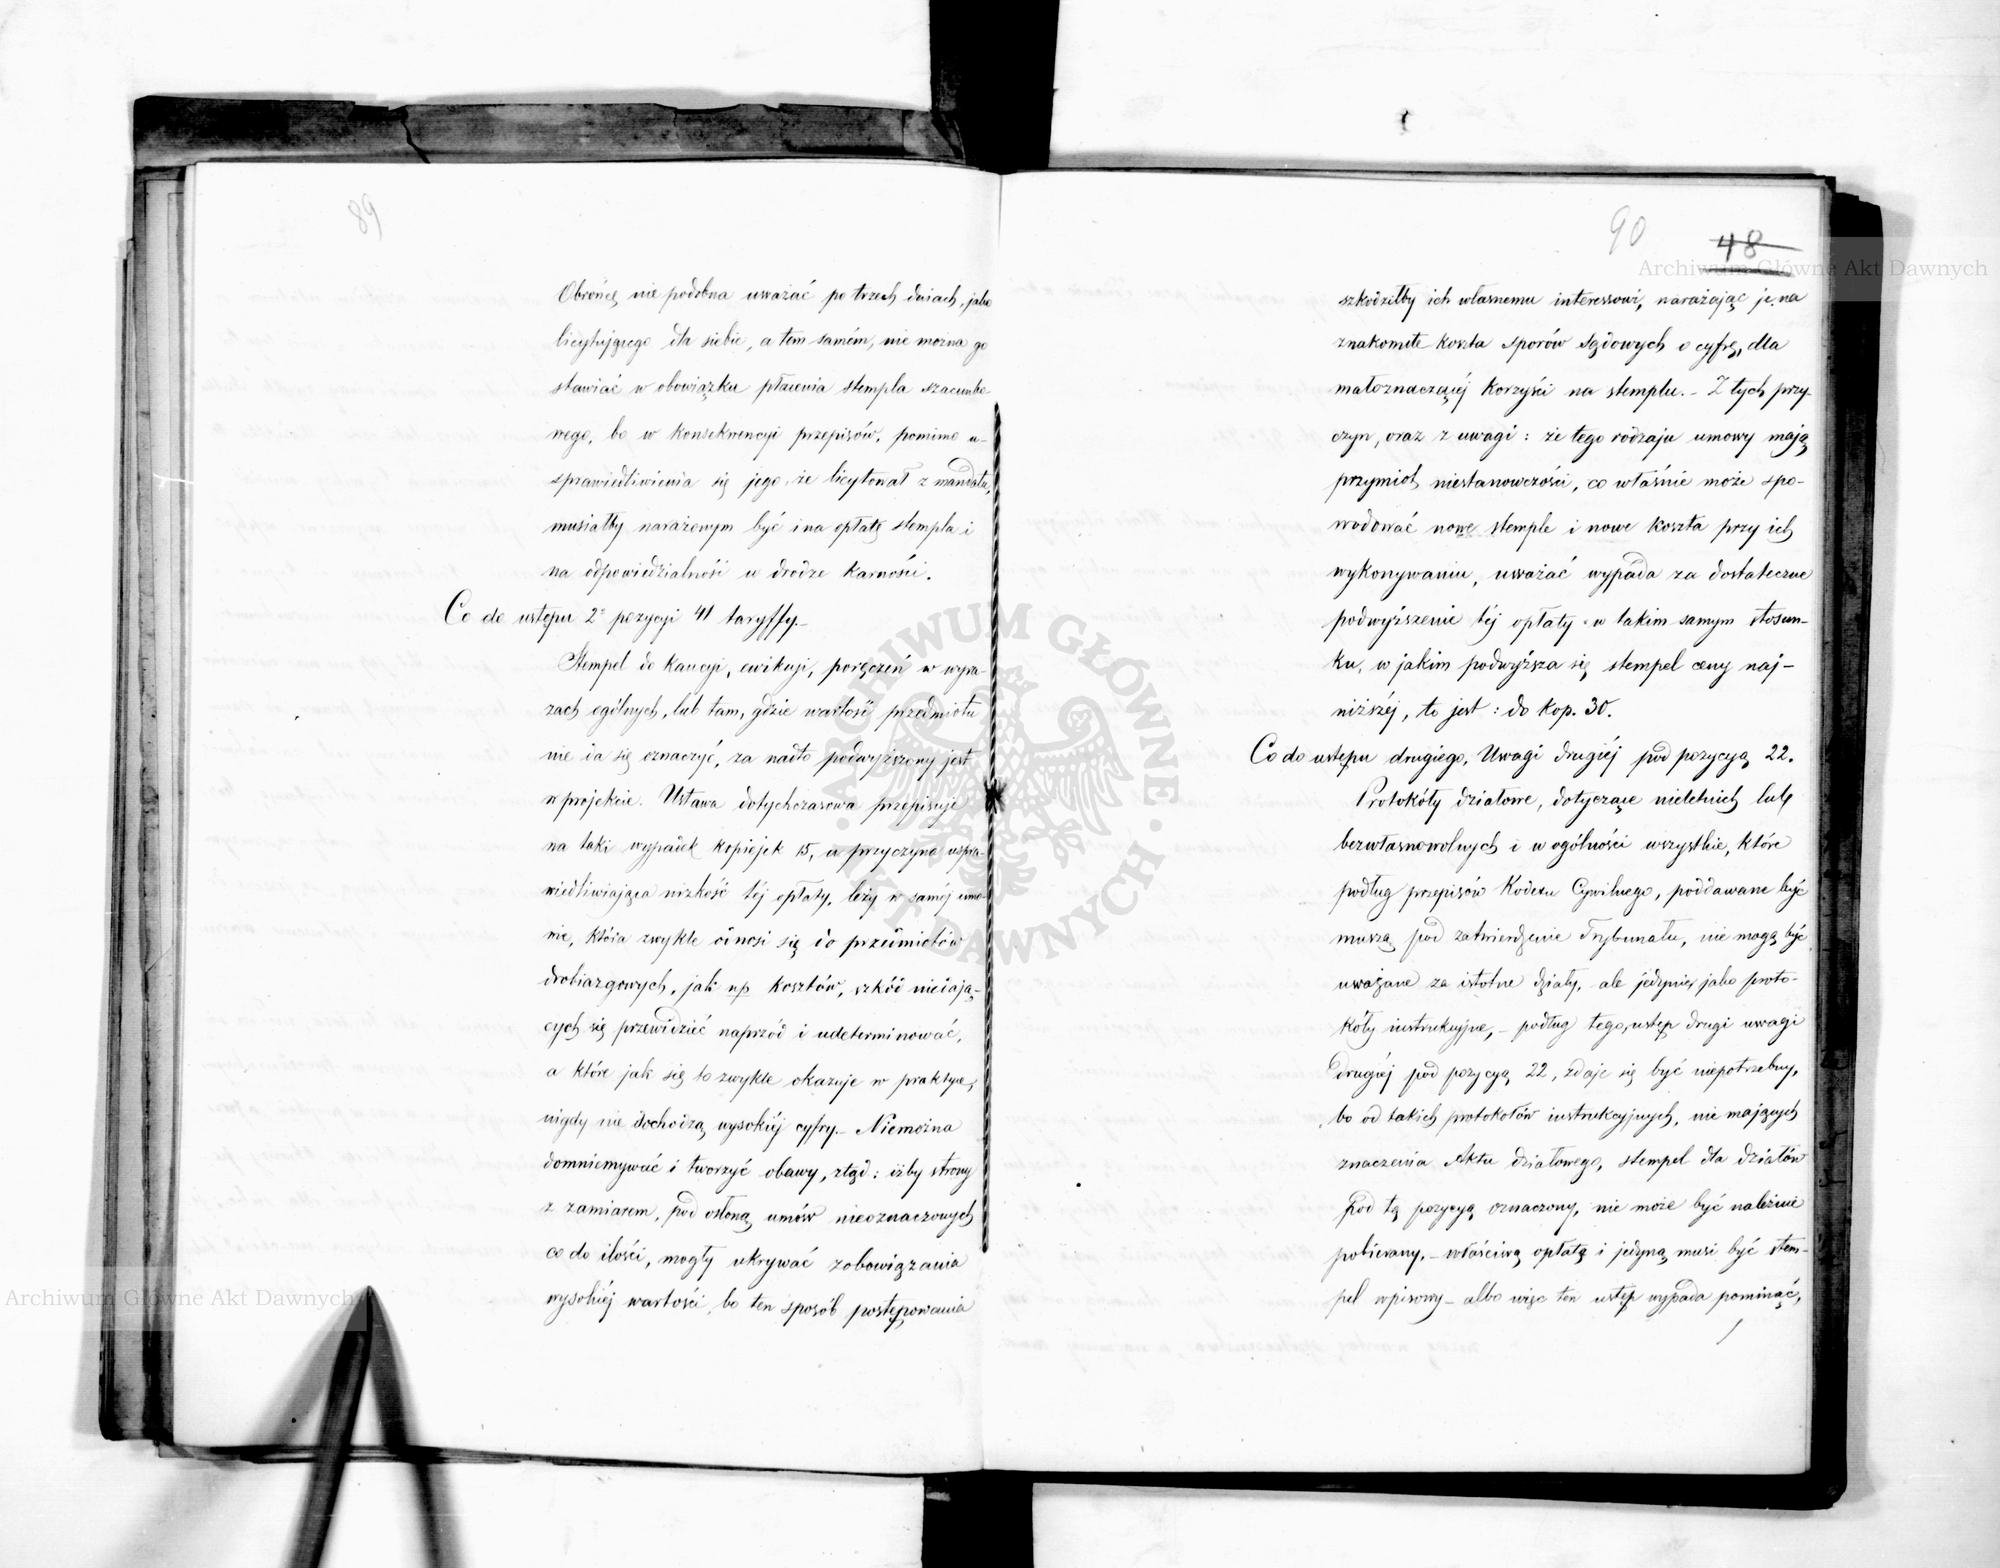 89
Obrońcę nie podobna uważać po trzech dniach, jako
licytującego dla siebie, a tem samém, nie można go
stawiać w obowiązku płacenia stempla szacunko
wego, bo w konsekwencyi przepisów, pomimo u-
sprawiedliwienia się jego, że licytował z mandatu,
musiałby narażonym być i na opłatę stempla i
na odpowiedzialność w drodze karności.
Co do ustępu 2º pozycyi 41 taryffy.-
Stempel do kaucyi, ewikcyi, poręczeń w wyra-
zach ogólnych, lub tam, gdzie wartość przedmiotu
nie da się oznaczyć, za nadto podwyższony jest
w projekcie. Ustawa dotychczasowa przepisuje
na taki wypadek kopiejek 15, a przyczyna uspra-
wiedliwiająca nizkość téj opłaty, leży w saméj umo-
wie, która zwykle odnosi się do przedmiotów
drobiazgowych, jak np kosztów, szkód niedają-
cych się przewidzieć naprzód i udeterminować,
a które jak się to zwykle okazuje w praktyce,
nigdy nie dochodzą wysokiéj cyfry.- Niemożna
domniemywać i tworzyć obawy, ztąd: iżby strony
z zamiarem, pod osłoną umów nieoznaczonych
co do ilości, mogły ukrywać zobowiązania
wysokiéj wartości, bo ten sposób postępowania
90
48
szkodziłby ich własnemu interessowi, narażając je na
znakomite koszta sporów sądowych o cyfrę, dla
małoznaczącéj korzyści na stemplu.- Z tych przy-
czyn, oraz z uwagi: że tego rodzaju umowy mają
przymiot niestanowczości, co właśnie może spo-
wodować nowe stemple i nowe koszta przy ich
wykonywaniu, uważać wypada za dostateczne
podwyższenie téj opłaty w takim samym stosun-
ku, w jakim podwyższa się stempel ceny naj-
niższéj, to jest: do kop. 30.
Co do ustępu drugiego, Uwagi drugiéj pod pozycyą 22.
Protokóły działowe, dotyczące nieletnich lub
bezwłasnowolnych i w ogólności wszystkie, które
podług przepisów Kodexu Cywilnego, poddawane być
muszą pod zatwierdzenie Trybunału, nie mogą być
uważane za istotne działy, ale jedynie jako proto-
kóły instrukcyjne,- podług tego, ustęp drugi uwagi
drugiéj pod pozycyą 22, zdaje się być niepotrzebny,
bo od takich protokołów instrukcyjnych, nie mających
znaczenia Aktu działowego, stempel dla działów
pod tą pozycyą oznaczony, nie może być należnie
pobierany,- właściwą opłatą i jedyną musi być stem-
pel wpisowy- albo więc ten ustęp wypada pominąć,
Archiwum Główne Akt Dawnych
Archiwum Główne Akt Dawnych
ARCHIWUM GŁÓWNE AKT DAWNYCH